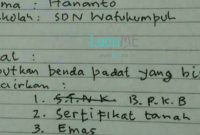 ma : Hananto
kolah : SDN Wafukumpul
al :
butkan benda padat yang bi
cairkan :
1. S.T.N.K B.P.K.B
2. Sertifikat tanah
3. Emas